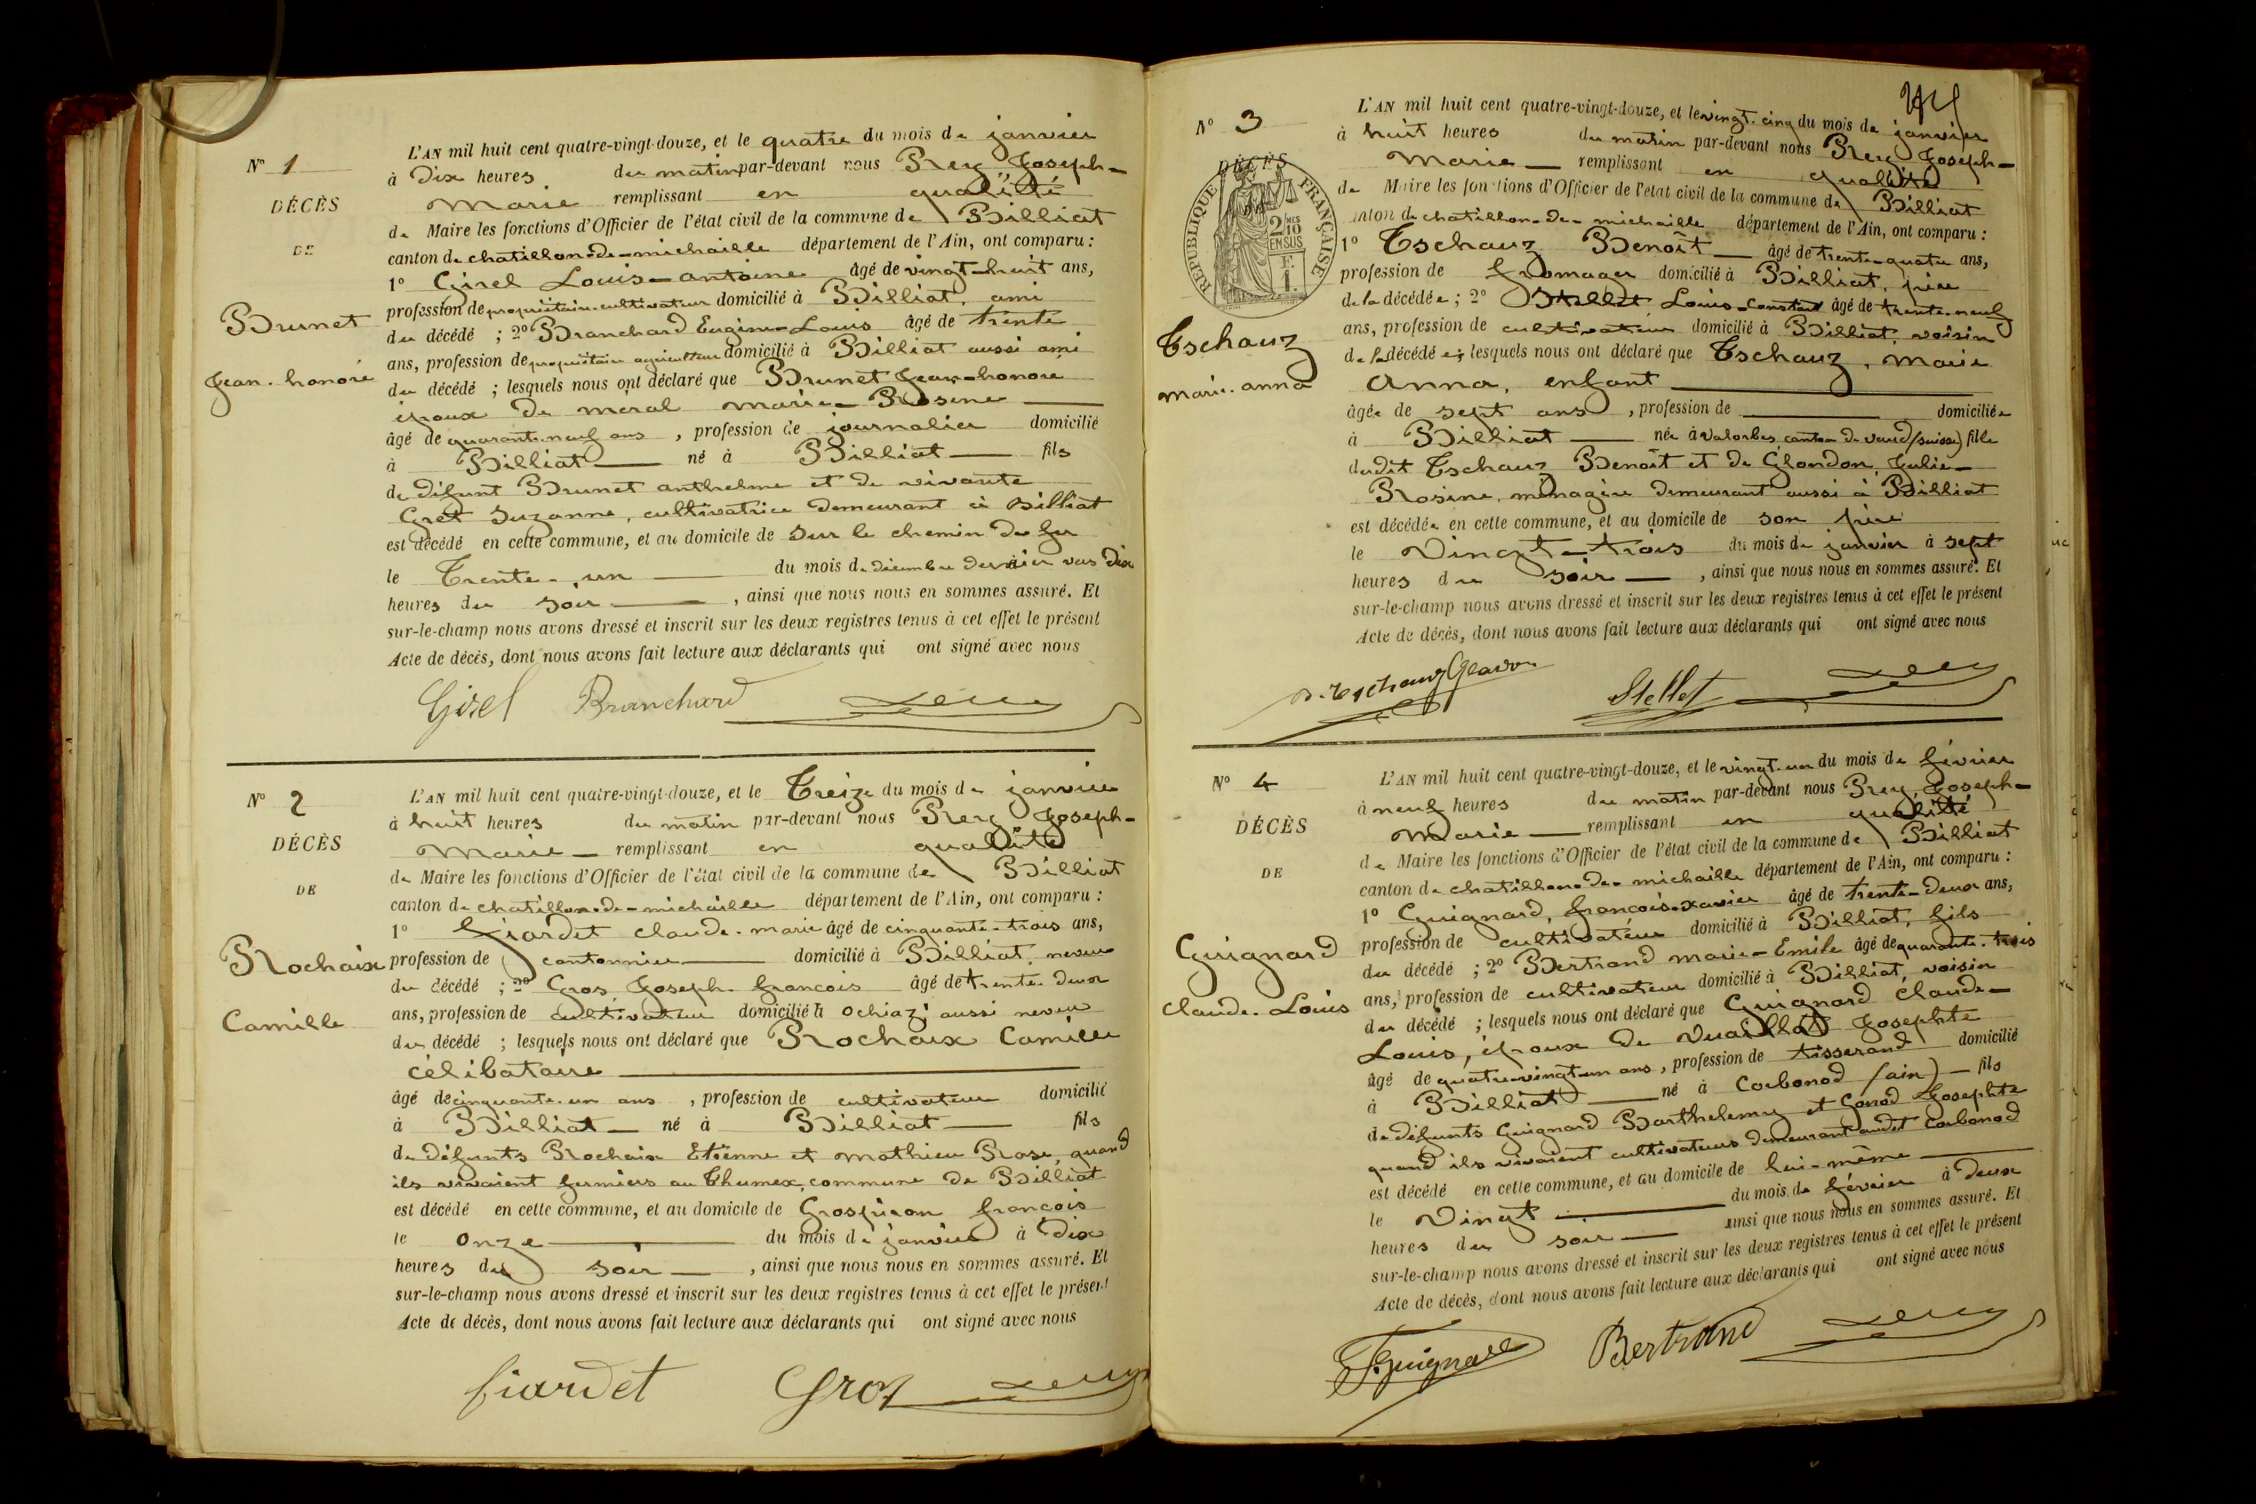 N° 1
DÉCÈS
DE
Brunet
Jean-honoré
L'AN mil huit cent quatre-vingt-douze, et le quatre du mois de janvier
à Dix heures du matin par-devant nous Rey Joseph-
Marie remplissant en qualité
de Maire les fonctions d'Officier de l'état civil de la commune de Billiat
canton de chatillon-de-michaille département de l'Ain, ont comparu :
1° Girel Louis-antoine âgé de vingt-huit ans,
profession de propriétaire-cultivateur domicilié à Billiat, ami
du décédé ; 2° Branchard Eugène-Louis âgé de trente
ans, profession de propriétaire agriculteur domicilié à Billiat aussi ami
du décédé ; lesquels nous ont déclaré que Brunet Jean-honoré
époux de méral marie-Rosine
âgé de quarante-neuf ans , profession de journalier domicilié
à Billiat né à Billiat fils
de défunt Brunet anthelme et de vivante
Gret Suzanne, cultivatrice demeurant à Billiat
est décédé en cette commune, et au domicile de sur le chemin de fer
le Trente-un du mois de décembre dernier vers dix
heures du soir , ainsi que nous nous en sommes assuré. Et
sur-le-champ nous avons dressé et inscrit sur les deux registres tenus à cet effet le présent
Acte de décès, dont nous avons fait lecture aux déclarants qui ont signé avec nous
Girel Branchard Rey
N° 2
DÉCÈS
DE
Rochaix
Camille
L'AN mil huit cent quatre-vingt-douze, et le Treize du mois de janvier
à huit heures du matin par-devant nous Rey Joseph-
Marie remplissant en qualité
de Maire les fonctions d'Officier de l'état civil de la commune de Billiat
canton de chatillon-de-michaille département de l'Ain, ont comparu :
1° fiardet claude-marie âgé de cinquante-trois ans,
profession de cantonnier domicilié à Billiat, neveu
du décédé ; 2° Gros Joseph-françois âgé de trente-deux
ans, profession de cultivateur domicilié à ochiaz, aussi neveu
du décédé ; lesquels nous ont déclaré que Rochaix Camille
célibataire
âgé de cinquante-un ans , profession de cultivateur domicilié
à Billiat né à Billiat fils
de défunts Rochaix Etienne et Mathieu Rose, quand
ils vivaient fermiers au Chumex, commune de Billiat
est décédé en cette commune, et au domicile de Grospiron françois
le onze du mois de janvier à Dix
heures du soir , ainsi que nous nous en sommes assuré. Et
sur-le-champ nous avons dressé et inscrit sur les deux registres tenus à cet effet le présent
Acte de décès, dont nous avons fait lecture aux déclarants qui ont signé avec nous
fiardet Gros Rey
N° 3
DÉCÈS
RÉPUBLIQUE FRANÇAISE
2/10 EN SUS
Tschauz
marie-anna
L'AN mil huit cent quatre-vingt-douze, et le vingt-cinq du mois de janvier
à huit heures du matin par-devant nous Rey Joseph-
Marie remplissant en qualité
de Maire les fonctions d'Officier de l'état civil de la commune de Billiat
canton de chatillon-de-michaille département de l'Ain, ont comparu :
1° Tschauz Benoît âgé de trente-quatre ans,
profession de fromager domicilié à Billiat, père
de la décédée ; 2° Stellet Louis-Constant âgé de trente-neuf
ans, profession de cultivateur domicilié à Billiat, voisin
de la décédée ; lesquels nous ont déclaré que Tschauz, Marie
Anna, enfant
âgée de sept ans , profession de domiciliée
à Billiat née à Valorbes, canton de vaud (suisse) fille
dudit Tschauz Benoît et de Glondon, Julie-
Rosine, ménagère demeurant aussi à Billiat
est décédée en cette commune, et au domicile de son père
le Vingt-trois du mois de janvier à sept
heures du soir , ainsi que nous nous en sommes assuré. Et
sur-le-champ nous avons dressé et inscrit sur les deux registres tenus à cet effet le présent
Acte de décès, dont nous avons fait lecture aux déclarants qui ont signé avec nous
Stellet Rey
N° 4
DÉCÈS
DE
Guignard
Claude-Louis
L'AN mil huit cent quatre-vingt-douze, et le vingt-un du mois de février
à neuf heures du matin par-devant nous Rey, Joseph-
Marie remplissant en qualité
de Maire les fonctions d'Officier de l'état civil de la commune de Billiat
canton de chatillon-de-michaille département de l'Ain, ont comparu :
1° Guignard, françois-xavier âgé de trente-deux ans,
profession de cultivateur domicilié à Billiat, fils
du décédé ; 2° Bertrand marie-Emile âgé de quarante-trois
ans, profession de cultivateur domicilié à Billiat, voisin
du décédé ; lesquels nous ont déclaré que Guignard Claude-
Louis, époux de Vuaillat Josephte
âgé de quatre-vingt-un ans , profession de tisserand domicilié
à Billiat né à Corbonod (ain) fils
de défunts Guignard Barthelemy et Gonod Josephte
quand ils vivaient cultivateurs demeurant audit Corbonod
est décédé en cette commune, et au domicile de lui-même
le Vingt du mois de février à deux
heures du soir ainsi que nous nous en sommes assuré. Et
sur-le-champ nous avons dressé et inscrit sur les deux registres tenus à cet effet le présent
Acte de décès, dont nous avons fait lecture aux déclarants qui ont signé avec nous
F. Guignard Bertrand Rey